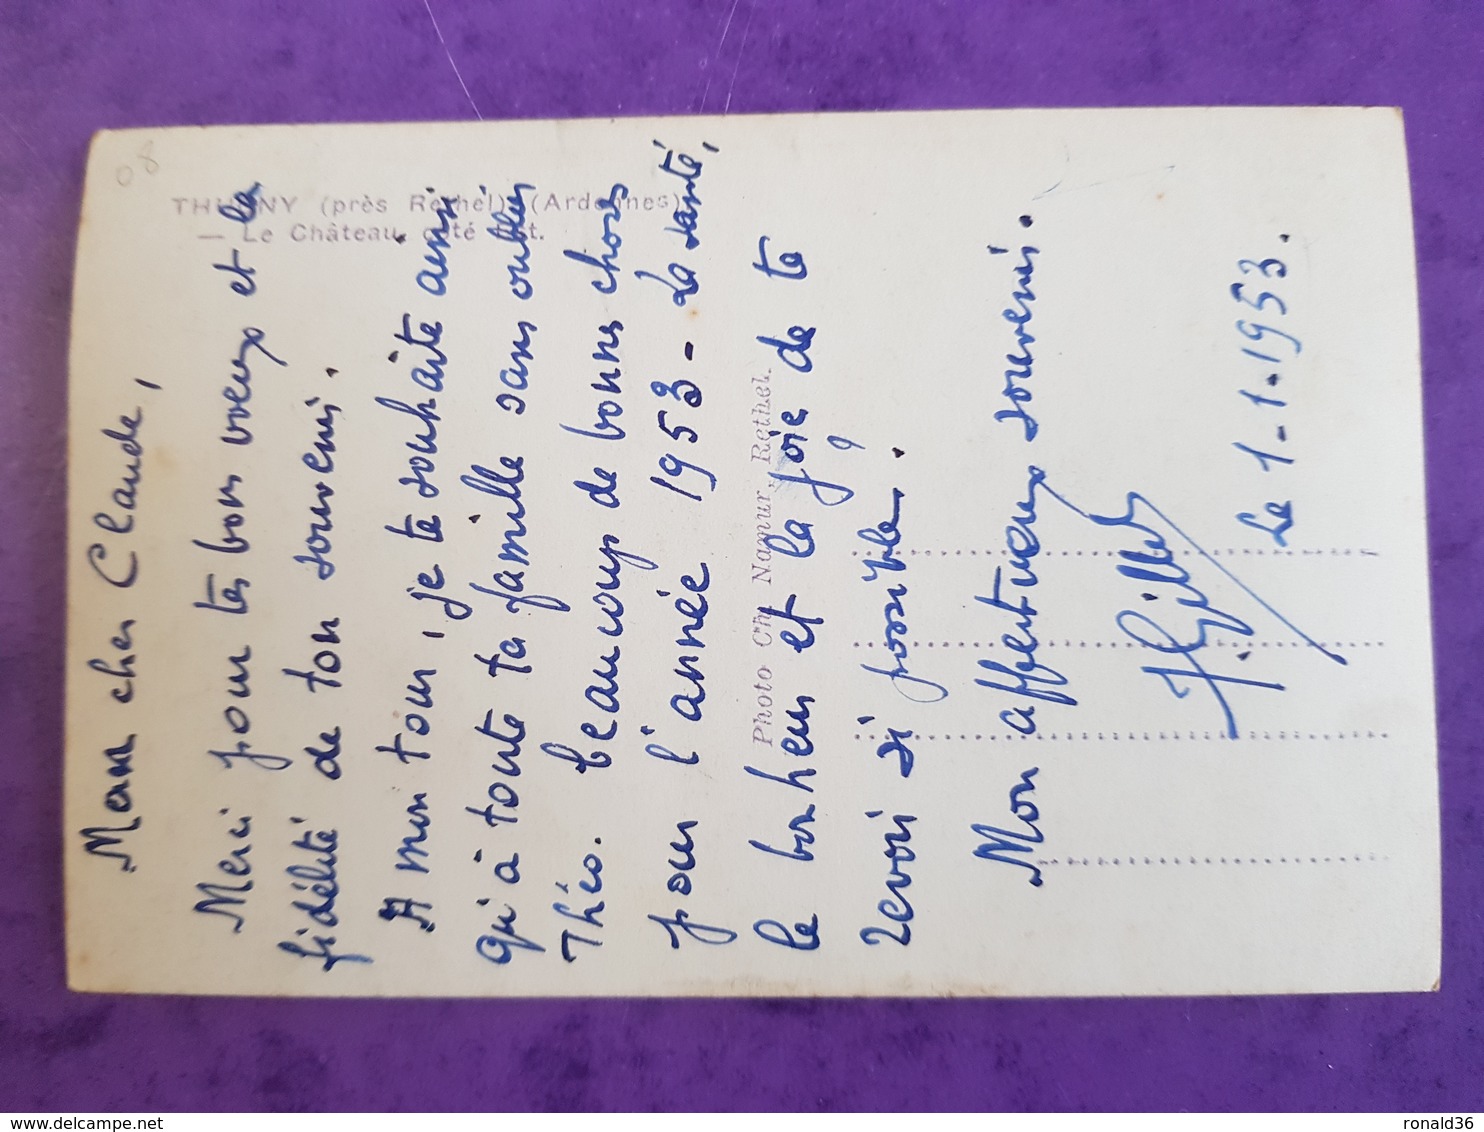 08
THUGNY (près Rethel) (Ardennes)
— Le Château, côté Est.
Photo Ch. Namur, Rethel.
Mon cher Claude,
Merci pour tes bons voeux et la
fidélité de ton souvenir.
A mon tour, je te souhaite ainsi
qu'à toute ta famille sans oublier
Théo. beaucoup de bonnes choses
pour l'année 1953 - La santé,
le bonheur et la joie de te
revoir si possible.
Mon affectueux souvenir.
Le 1-1-1953.
delcampe.net
ronald36